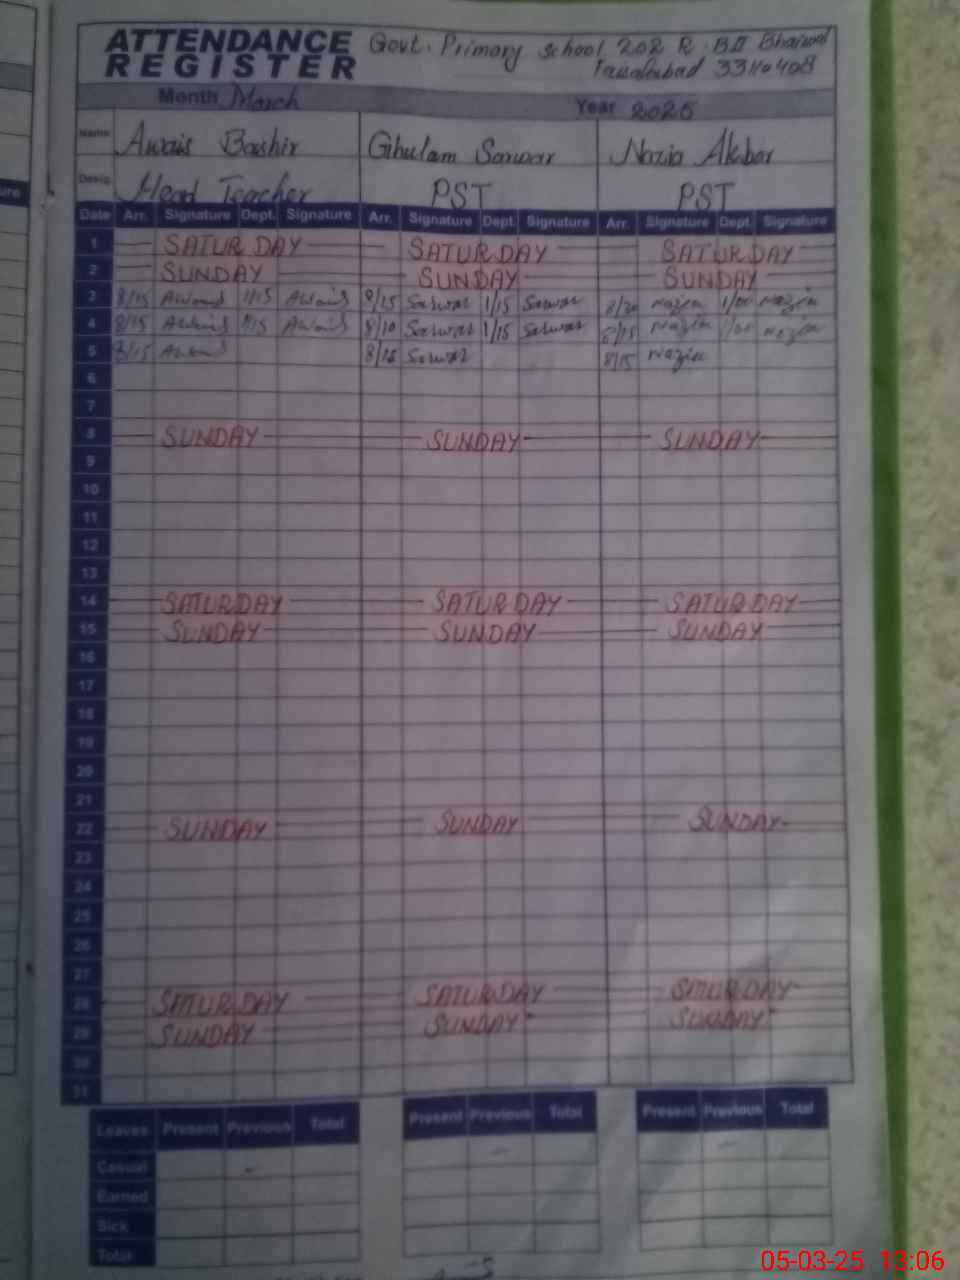 ATTENDANCE REGISTER
Govt. Primary School 202 R.B II Bhaiwal
Faisalabad 33110408
Month March Year 2025
Name Awais Bashir Ghulam Sarwar Nazia Akbar
Desig. Head Teacher PST PST
Date Arr. Signature Dept. Signature Arr. Signature Dept. Signature Arr. Signature Dept. Signature
1 SATURDAY SATURDAY SATURDAY
2 SUNDAY SUNDAY SUNDAY
3 8/15 Awais 1/15 Awais 8/15 Sarwar 1/15 Sarwar 8/20 Nazia 1/00 Nazia
4 8/15 Awais 1/15 Awais 8/10 Sarwar 1/15 Sarwar 8/15 Nazia 1/00 Nazia
5 8/15 Awais 8/15 Sarwar 8/15 Nazia
6
7
8 SUNDAY SUNDAY SUNDAY
9
10
11
12
13
14 SATURDAY SATURDAY SATURDAY
15 SUNDAY SUNDAY SUNDAY
16
17
18
19
20
21
22 SUNDAY SUNDAY SUNDAY
23
24
25
26
27
28 SATURDAY SATURDAY SATURDAY
29 SUNDAY SUNDAY SUNDAY
30
31
Leaves Present Previous Total Present Previous Total Present Previous Total
Casual - - -
Earned
Sick
Total
05-03-25 13:06